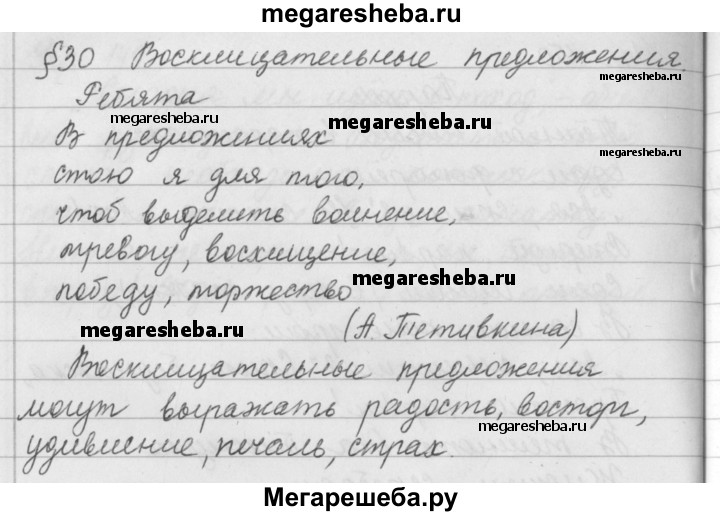 megaresheba.ru
§30 Восклицательные предложения.
megaresheba.ru
Ребята
megaresheba.ru
В предложениях
megaresheba.ru
стою я для того,
чтоб выделить волнение,
тревогу, восхищение,
победу, торжество
megaresheba.ru
megaresheba.ru
(А. Тетивкина)
Восклицательные предложения
могут выражать радость, восторг,
megaresheba.ru
удивление, печаль, страх.
Мегарешеба.ру